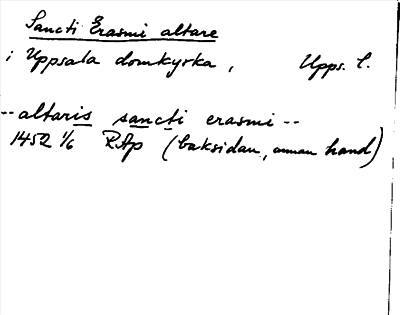 Sancti Erasmi altare
i Uppsala domkyrka, Upps. l.
--altaris sancti erasmi--
1452 1/6 RAp (baksidan, annan hand)